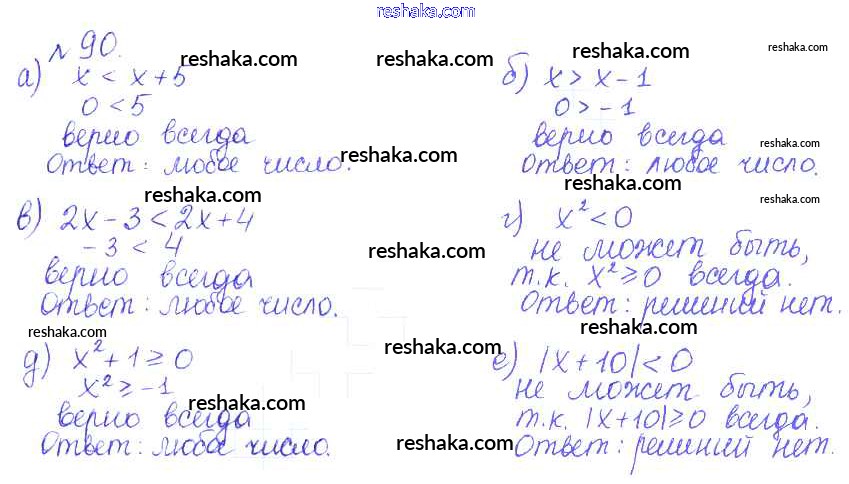 reshaka.com
№ 90.
reshaka.com
reshaka.com
reshaka.com
а) x < x + 5
0 < 5
верно всегда
Ответ: любое число.
reshaka.com
reshaka.com
б) x > x - 1
0 > - 1
верно всегда
Ответ: любое число.
reshaka.com
reshaka.com
reshaka.com
в) 2x - 3 < 2x + 4
- 3 < 4
верно всегда
Ответ: любое число.
reshaka.com
г) x² < 0
не может быть,
т.к. x² ≥ 0 всегда.
Ответ: решений нет.
reshaka.com
reshaka.com
reshaka.com
д) x² + 1 ≥ 0
x² ≥ -1
верно всегда
Ответ: любое число.
reshaka.com
reshaka.com
е) |x + 10| < 0
не может быть,
т.к. |x+10| ≥ 0 всегда.
Ответ: решений нет.